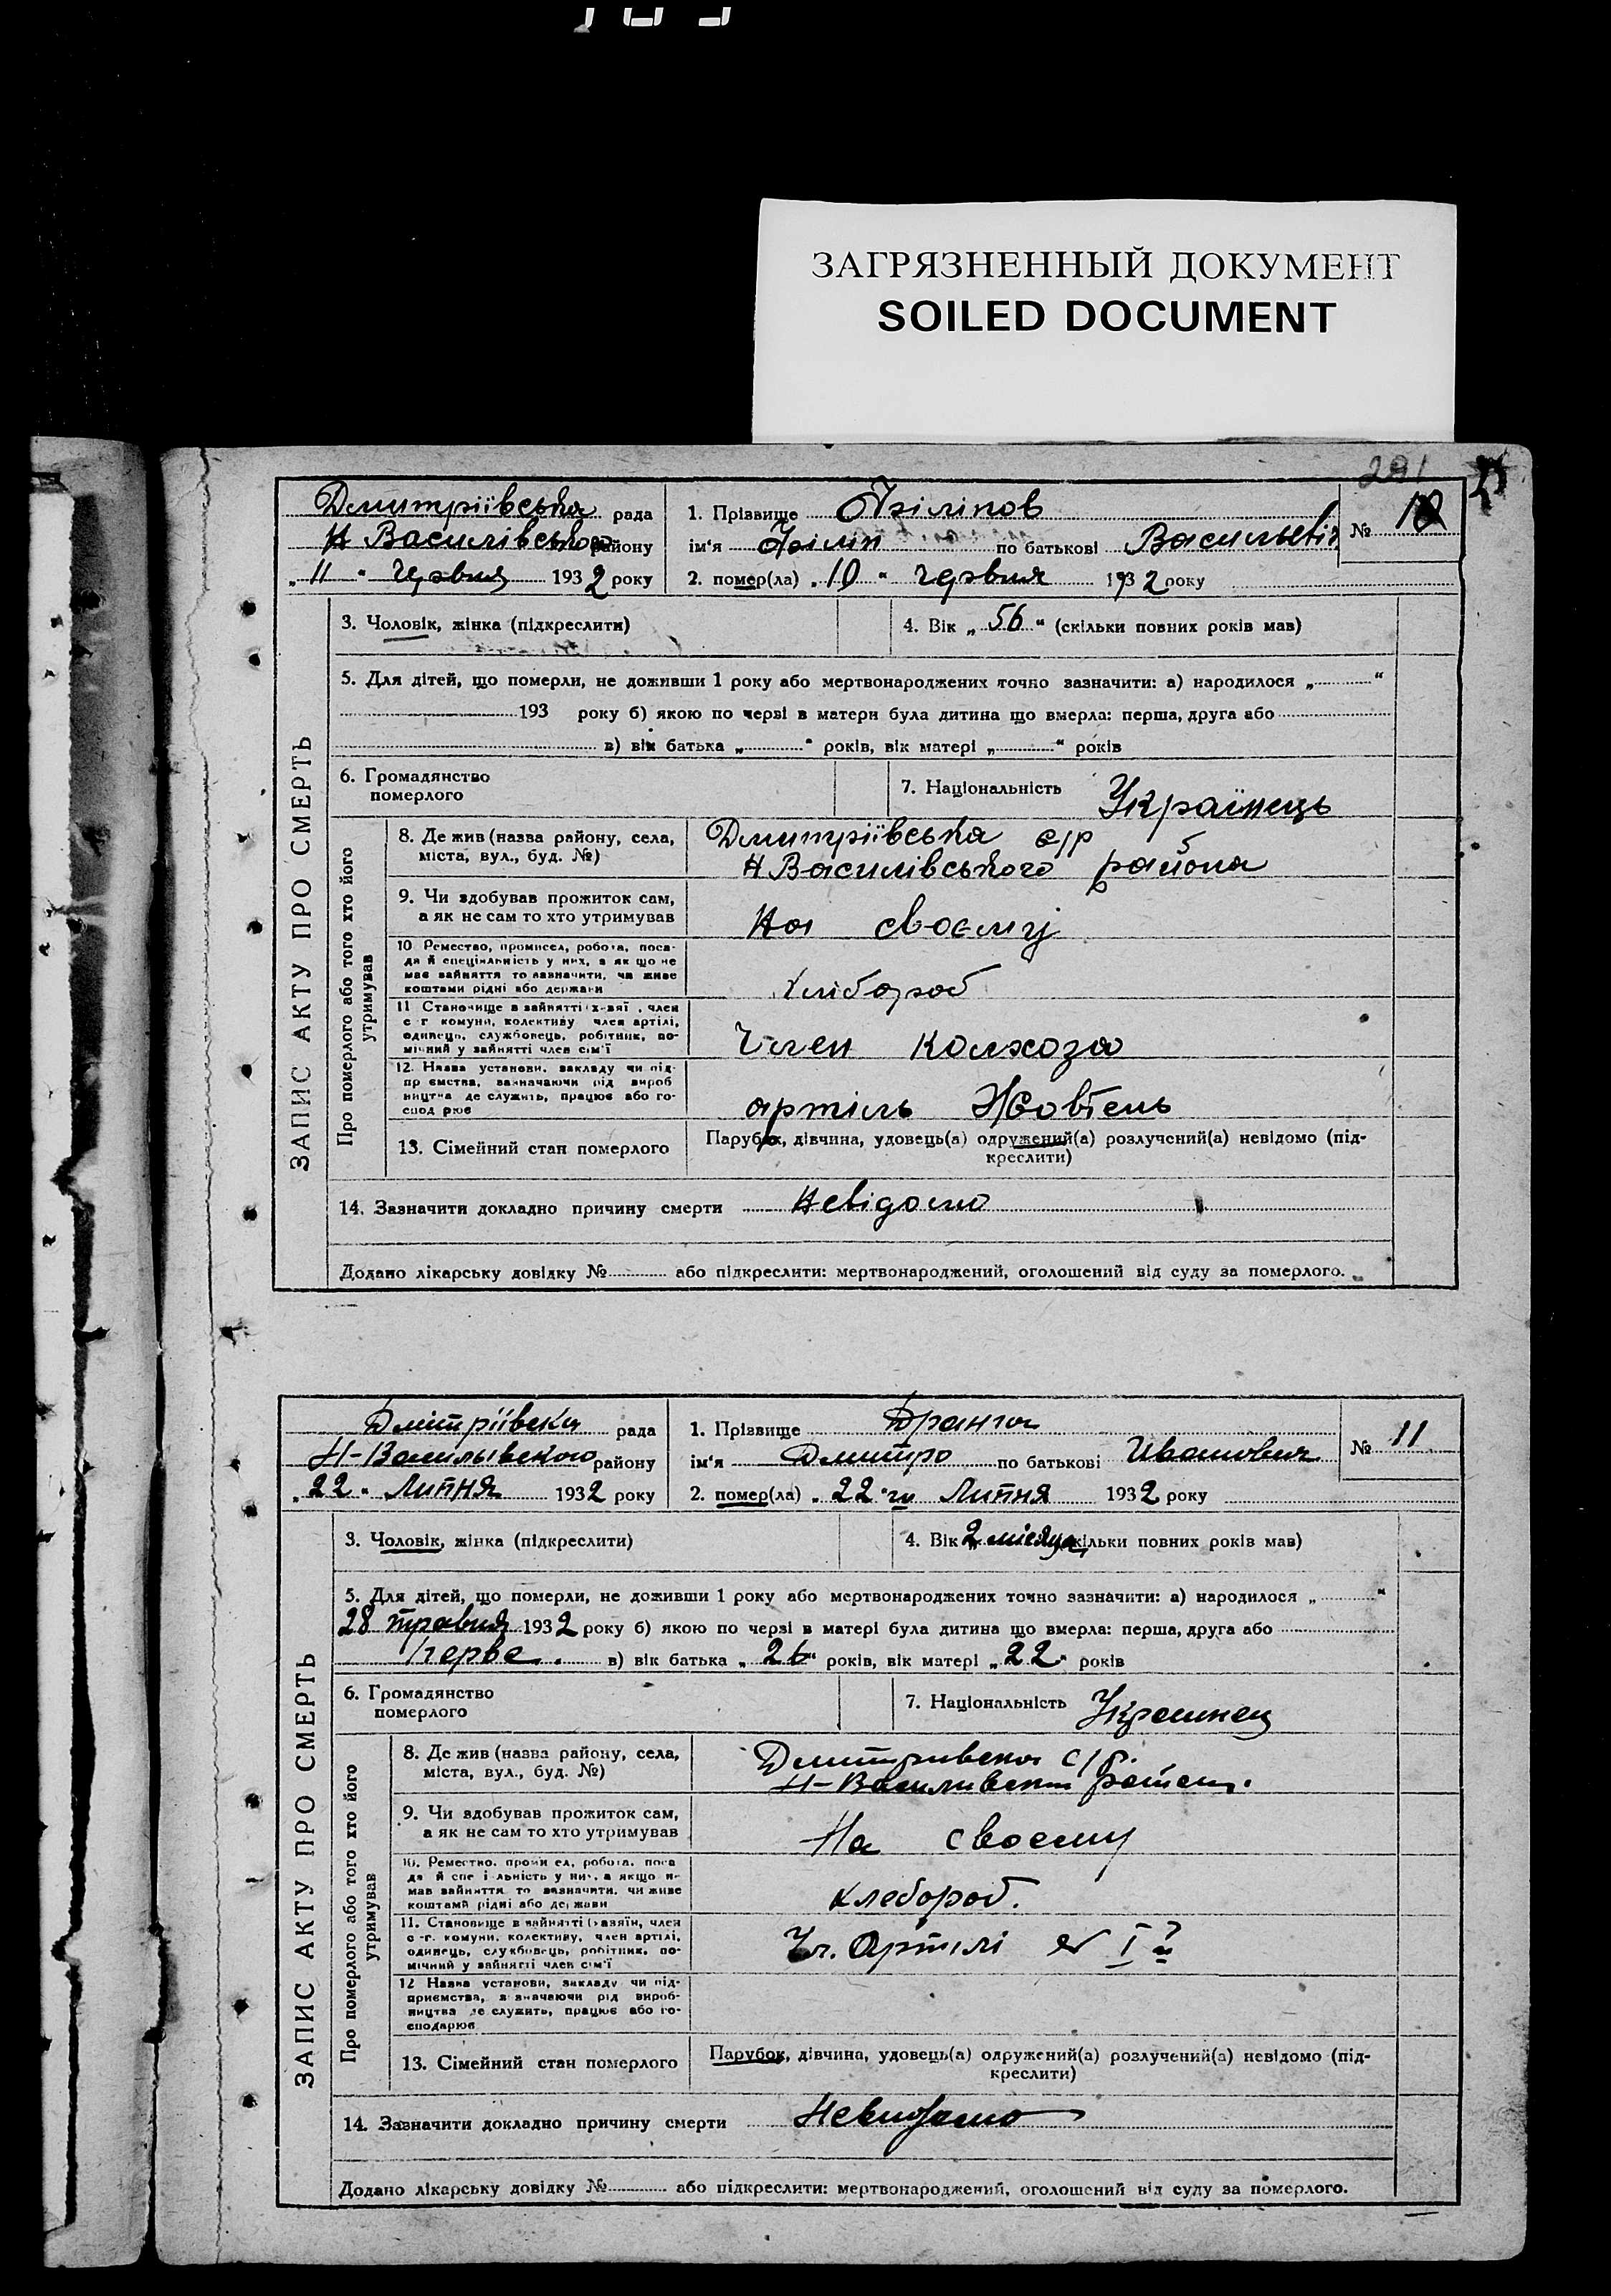 ЗАГРЯЗНЕННЫЙ ДОКУМЕНТ
SOILED DOCUMENT
291
Дмитріївська рада
Н Василівського району
„ 11 " червня 1932 року
1. Прізвище Філіпов
ім'я Філіп по батькові Васильевіч
№ 10
2. помер(ла) „ 10 " червня 1932 року
ЗАПИС АКТУ ПРО СМЕРТЬ
3. Чоловік, жінка (підкреслити)
4. Вік „ 56 " (скільки повних років мав)
5. Для дітей, що померли, не доживши 1 року або мертвонароджених точно зазначити: а) народилося „ "
193 року б) якою по черзі в матери була дитина що вмерла: перша, друга або
в) вік батька „ " років, вік матері „ " років
6. Громадянство померлого
7. Національність Українець
Про померлого або того хто його утримував
8. Де жив (назва району, села, міста, вул., буд. №)
Дмитріївська с/р
Н Василівського района
9. Чи здобував прожиток сам, а як не сам то хто утримував
На своєму
10 Ремество, промисел, робота, посада й спеціяльність у них, а як що не має зайняття то зазначити, чи живе коштами рідні або держави
Хлібороб
11 Становище в зайнятті хазяї, член с г комуни, колективу член артілі, одинець, службовець, робітник, помічний у зайнятті член сім'ї
Член колхоза
12. Назва установи, закладу чи підприємства, зазначаючи рід виробництва де служить, працює або господрює
артіль Жовтень
13. Сімейний стан померлого
Парубок, дівчина, удовець(а) одружений(а) розлучений(а) невідомо (підкреслити)
14. Зазначити докладно причину смерти Невідомо
Додано лікарську довідку № або підкреслити: мертвонароджений, оголошений від суду за померлого.
Дмітріївска рада
Н-Васильівского району
„ 22 " Липня 1932 року
1. Прізвище Дранга
ім'я Дмитро по батькові Иванович
№ 11
2. помер(ла) „ 22 "го Липня 1932 року
ЗАПИС АКТУ ПРО СМЕРТЬ
3. Чоловік, жінка (підкреслити)
4. Вік 2 місяца (скільки повних років мав)
5. Для дітей, що померли, не доживши 1 року або мертвонароджених точно зазначити: а) народилося „ "
28 травня 1932 року б) якою по черзі в матері була дитина що вмерла: перша, друга або
перве. в) вік батька „ 26 " років, вік матері „ 22 " років
6. Громадянство померлого
7. Національність Украинец
Про померлого або того хто його утримував
8. Де жив (назва району, села, міста, вул., буд. №)
Дмитривска с/р.
Н-Василивски
9. Чи здобував прожиток сам, а як не сам то хто утримував
На своему
10. Ремество, промисел, робота, посада й спеціяльність у них, а якщо немає зайняття то зазначити, чи живе коштами рідні або держави
хлебороб.
11. Становище в зайнятті (хазяїн, член с.-г. комуни, колективу, член артілі, одинець, службовець, робітник, помічний у зайнятті член сім'ї
Чл. Артилі
12 Назва установи, закладу чи підприємства, зазначаючи рід виробництва де служить, працює або господарює
13. Сімейний стан померлого
Парубок, дівчина, удовець(а) одружений(а) розлучений(а) невідомо (підкреслити)
14. Зазначити докладно причину смерти Невидомо
Додано лікарську довідку № або підкреслити: мертвонароджений, оголошений від суду за померлого.